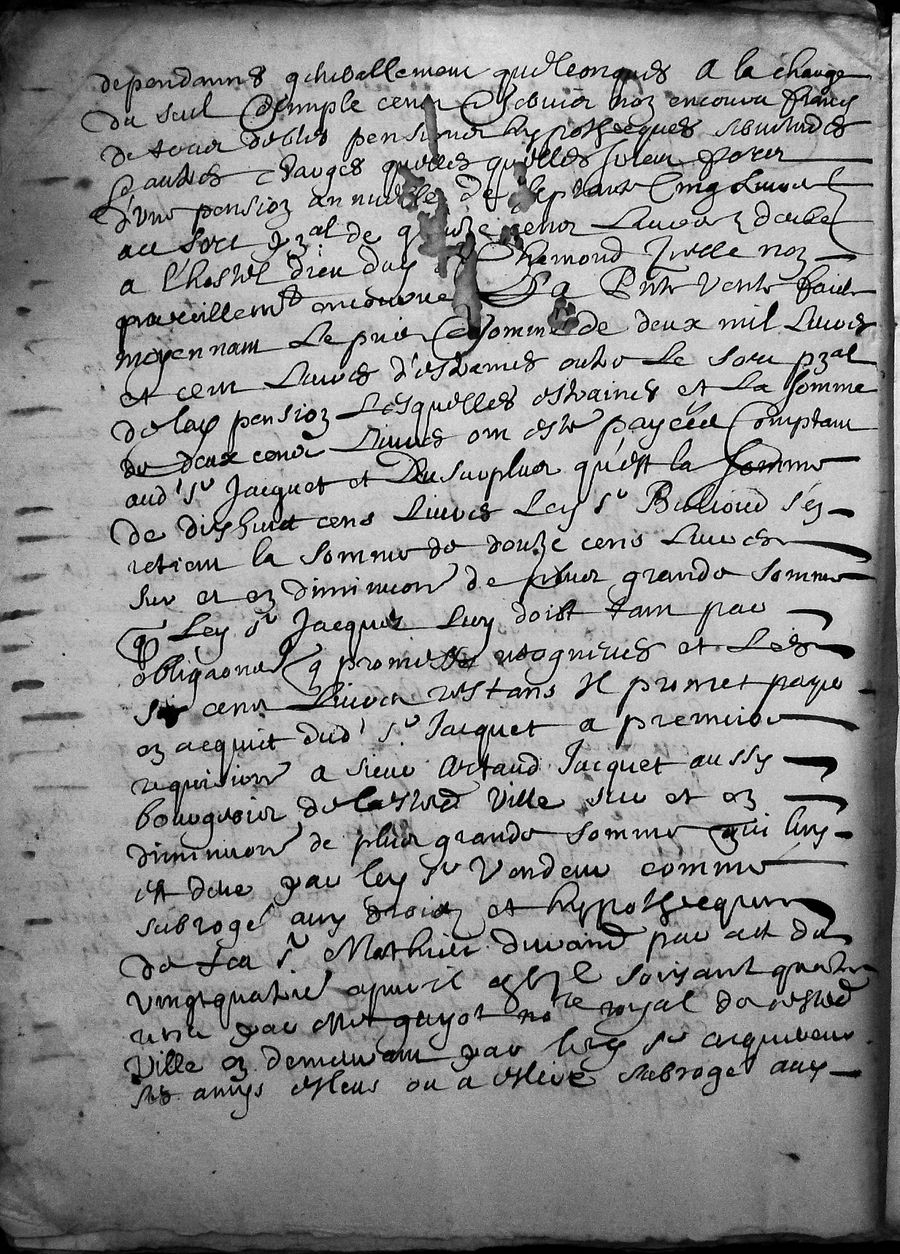 dependannes généballement quelconques A la charge
du seul Cemple cens non encouru francq
de toutes debtes pensions hyppothecques servitudes
& autres charges quelles quelles soient fors
d'une pension annuelle de septante Cinq Livres
au sort p~al de quinze cens Livres deube
a l'hostel dieu duy Chamond Icelle non
pareillemt encourue La pnte vente faicte
moyennant Le prix & somme de deux mil Livres
et cent Livres d'estraines outre Le sort p~al
de lay pension Lesquelles estraines et La somme
de deux cens Livres ont esté payées Comptant
aud' sr Jacquet et Du surplus qu'est la somme
de dishuict cens Livres Ley sr Ballioud s'en
retient la somme de douze cens Livres
sur et en diminuon de plus grande somme
q Ley sr Jacquet Luy doibt tant par
obligaons q promesses recogneues et Les
six cens Livres restans Il promet payer
en acquit dud' sr Jacquet a premiere
requisition a sieur Artaud Jacquet aussy
bourgeois de lested ville sur et en
diminuon de plus grande somme qui luy
est deue par ley sr Vendeur comme
subrogé aux droictz et hyppothecques
de feu sr Mathieu durand par act du
vingtquatre apvril soixant quatre
receu par Me guyot nore royal de cested
ville en demeurant par ley sr acquereur
ses amys esleus ou a eslire subrogé aux